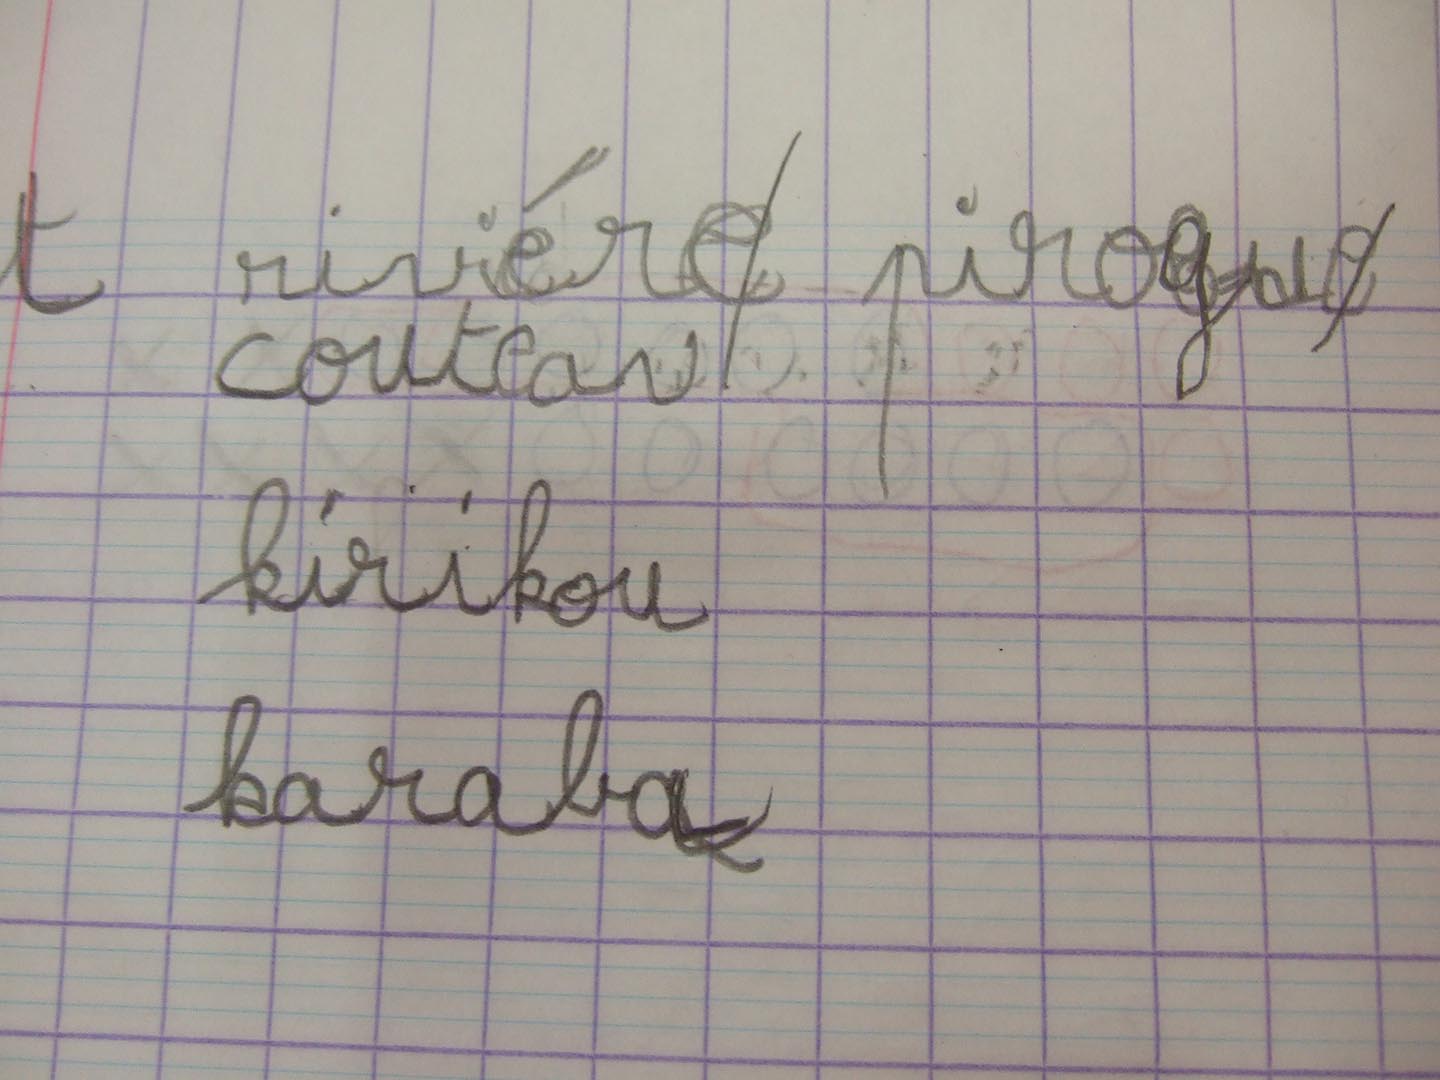 t riviére pirogue
couteau
kirikou
karaba